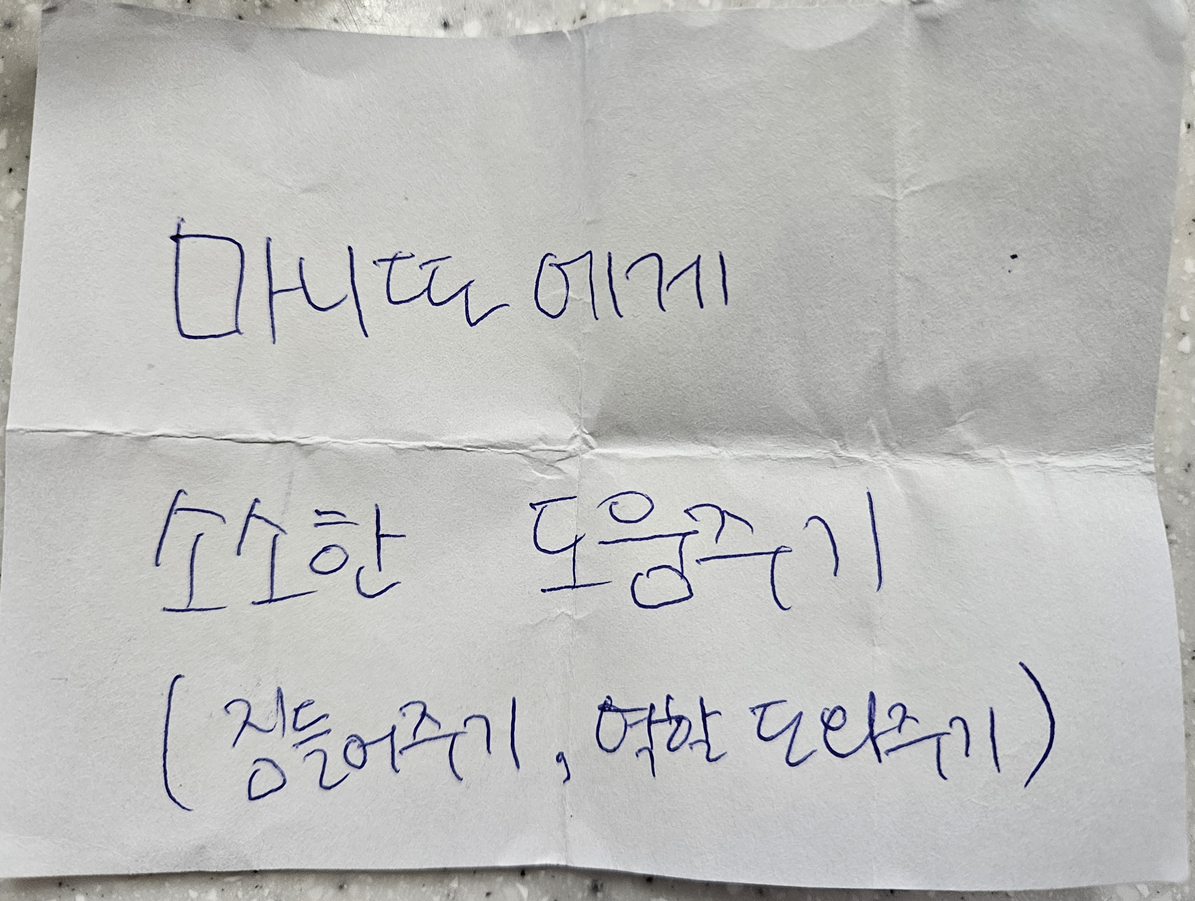 마니또에게
소소한 도움주기
(짐들어주기, 역할 도와주기)